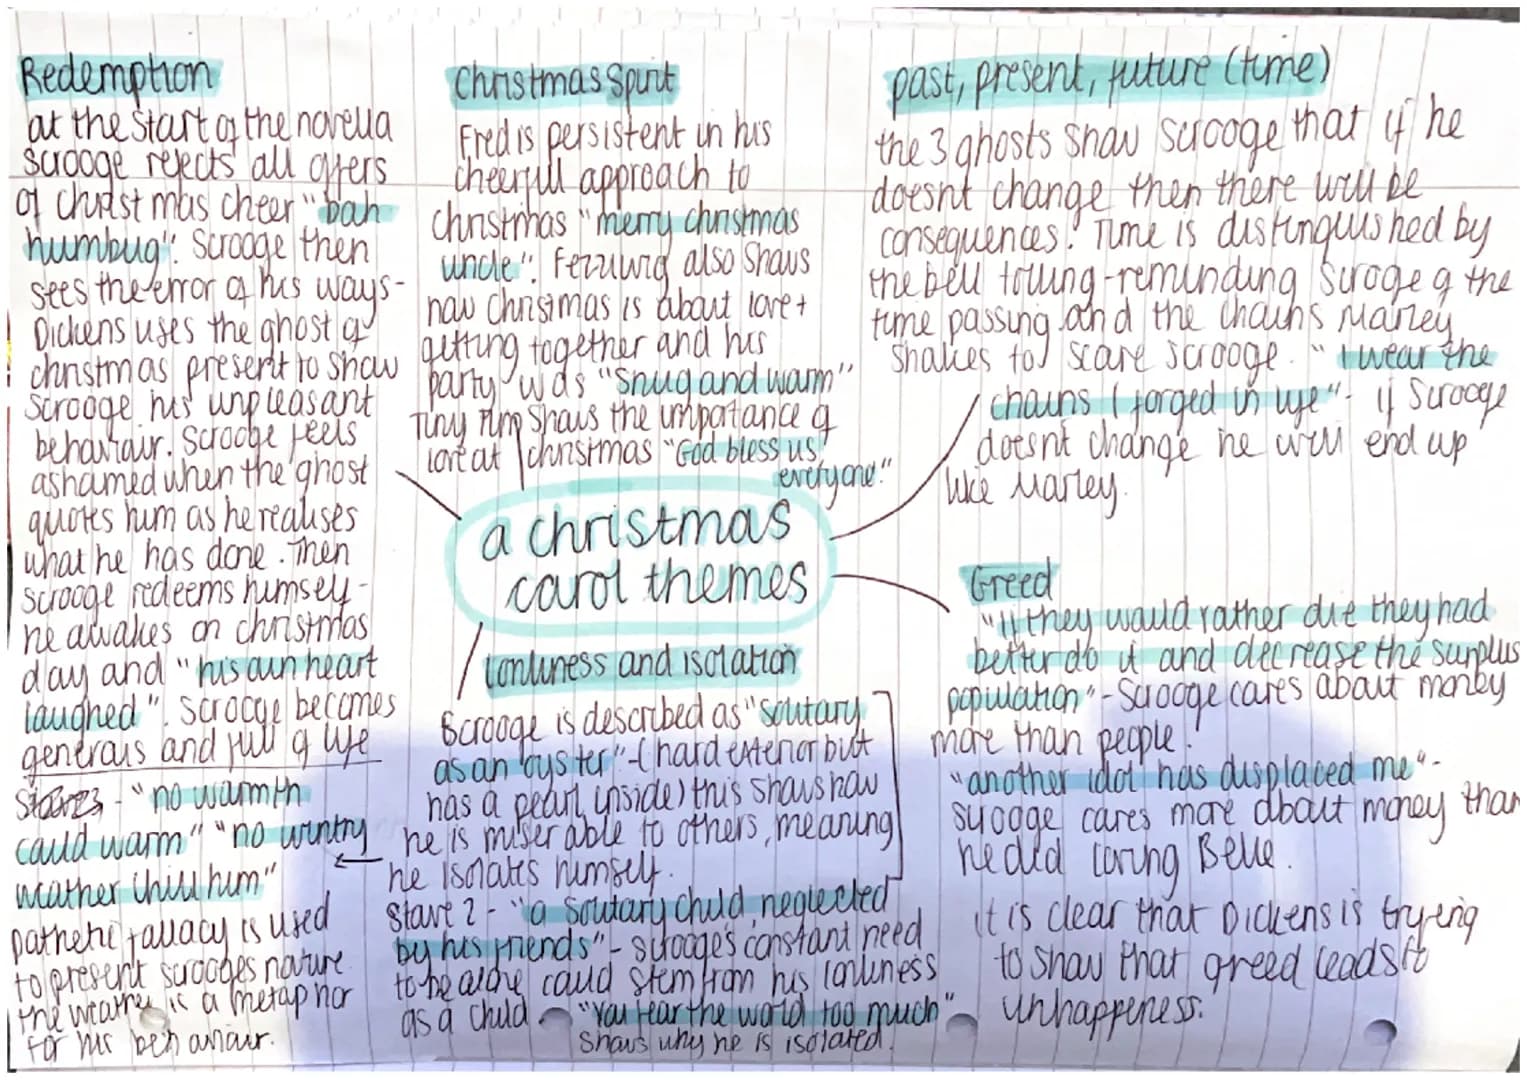 Redemption
at the start of the novella
scrooge rejects all offers
of christmas cheer "bah
humbug". Scrooge then
sees the error of his ways-
Dickens uses the ghost of
christmas present to show
Scrooge his unpleasant
behaviour. Scrooge feels
ashamed when the ghost
quotes him as he realises
what he has done. Then
scrooge redeems himself-
he awakes on christmas
day and "his own heart
laughed". Scrooge becomes
generous and full of life
"no warmth
could warm" "no wintry
weather chill him"
pathetic fallacy is used
to present scrooges nature.
the weather is a metaphor
for his behaviour.
Christmas Spirit
Fred is persistent in his
cheerful approach to
christmas "merry christmas
uncle". Fezziwig also shows
how christmas is about love+
getting together and his
party was "snug and warm"
Tiny Tim shows the importance of
love at christmas "God bless us
everyone."
past, present, future (time)
the 3 ghosts show scrooge that if he
doesnt change then there will be
consequences. Time is distinguished by
the bell tolling-reminding Scroge of the
time passing and the chains Marley
shakes to scare scrooge. "I wear the
chains I forged in life"- if Scrooge
doesnt change he will end up
like Marley.
a christmas
carol themes
lonliness and isolation
Scrooge is described as "solitary
as an oyster"-(hard exterior but
has a pearl inside) this shows how
he is miserable to others, meaning
he isolates himself.
Stave 2 - "a solitary child neglected
by his friends"- scrooge's constant need
to be alone could stem from his lonliness
as a child. "You fear the world too much"
shows why he is isolated.
Greed
"if they would rather die they had
better do it and decrease the surplus
population"-Scrooge cares about money
more than people.
"another idol has displaced me"-
scrooge cares more about money than
he did loving Belle.
it is clear that Dickens is trying
to show that greed leads to
unhappeness.